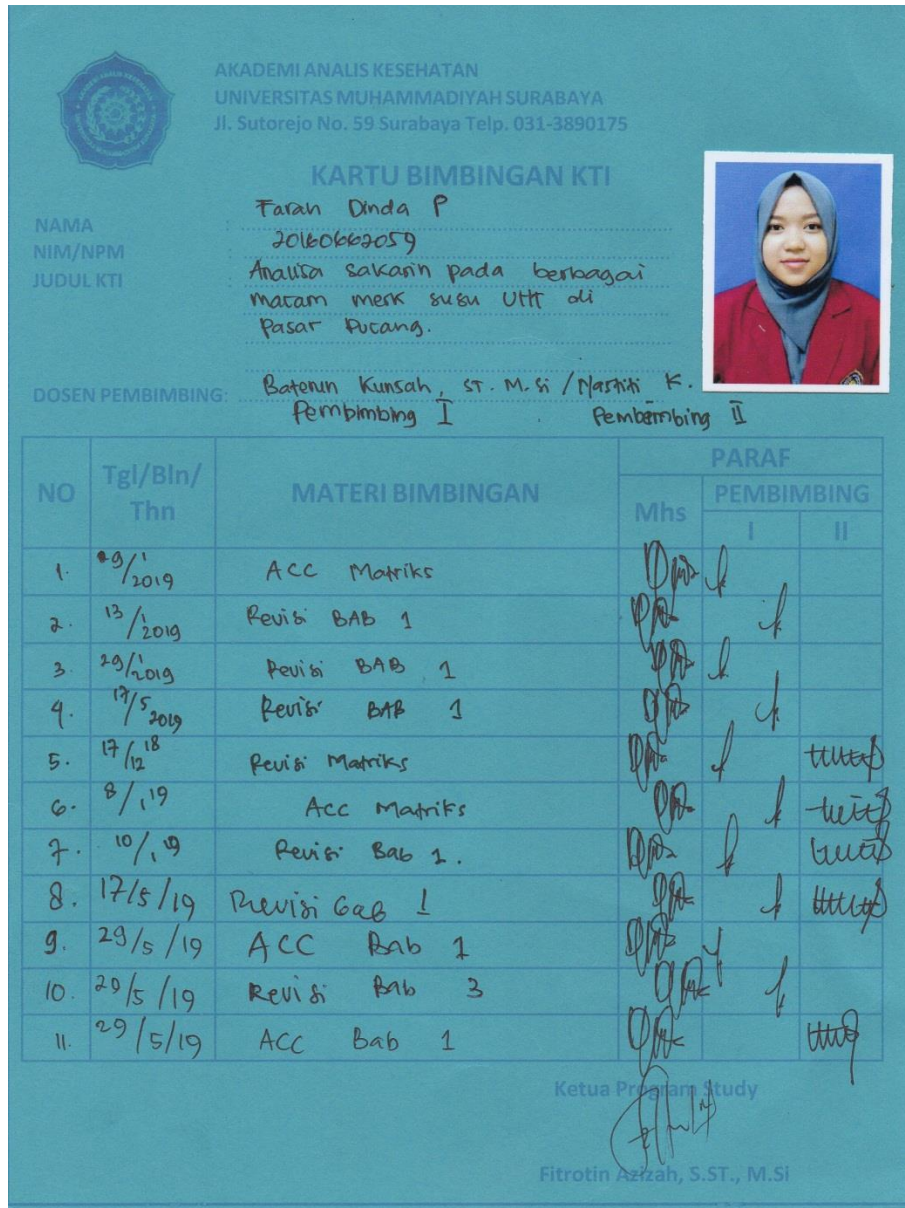 AKADEMI ANALIS KESEHATAN
UNIVERSITAS MUHAMMADIYAH SURABAYA
Jl. Sutorejo No. 59 Surabaya Telp. 031-3890175
KARTU BIMBINGAN KTI
NAMA : Farah Dinda P
NIM/NPM : 20160662059
JUDUL KTI : Analisa sakarin pada berbagai
macam merk susu UHT di
Pasar Pucang.
DOSEN PEMBIMBING: Baterun Kunsah, ST. M.Si / Nastiti K.
Pembimbing I Pembimbing II
NO Tgl/Bln/Thn MATERI BIMBINGAN PARAF
Mhs PEMBIMBING
I II
1. 29/1 2019 ACC Matriks
2. 13/1 2019 Revisi BAB 1
3. 29/1 2019 Revisi BAB 1
4. 17/5 2019 Revisi BAB 1
5. 17/12 18 Revisi Matriks
6. 8/1 19 ACC Matriks
7. 10/1 19 Revisi Bab 1.
8. 17/5/19 Revisi bab 1
9. 29/5/19 ACC Bab 1
10. 29/5/19 Revisi Bab 3
11. 29/5/19 ACC Bab 1
Ketua Program Study
Fitrotin Azizah, S.ST., M.Si